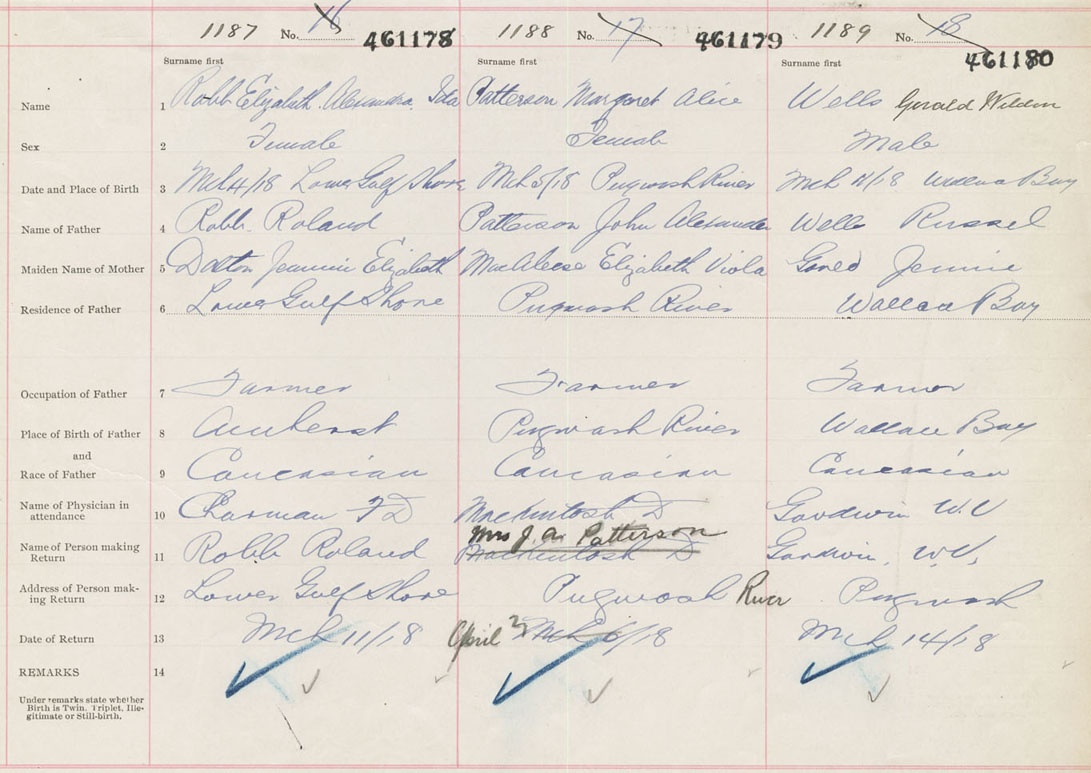 1187 No. 16 461178 1188 No. 17 461179 1189 No. 18 461180
Surname first Surname first Surname first
Name 1 Robb Elizabeth Alexandra Ida Patterson Margaret Alice Wells Gerald Weldon
Sex 2 Female Female Male
Date and Place of Birth 3 Mch 4/18 Lower Gulf Shore Mch 5/18 Pugwash River Mch 11/18 Wallace Bay
Name of Father 4 Robb Roland Patterson John Alexander Wells Russel
Maiden Name of Mother 5 Dalton Jeannie Elizabeth MacAleese Elizabeth Viola Jennie
Residence of Father 6 Lower Gulf Shore Pugwash River Wallace Bay
Occupation of Father 7 Farmer Farmer Farmer
Place of Birth of Father 8 Amherst Pugwash River Wallace Bay
and
Race of Father 9 Caucasian Caucasian Caucasian
Name of Physician in
attendance 10 Charman F D MacKintosh D Goodwin W.V
Mrs J. A. Patterson
Name of Person making
Return 11 Robb Roland MacKintosh D Goodwin, W.V.
Address of Person mak-
ing Return 12 Lower Gulf Shore Pugwash River Pugwash
Date of Return 13 Mch 11/18 April Mch /18 Mch 14/18
REMARKS 14
Under remarks state whether
Birth is Twin, Triplet, Ille-
gitimate or Still-birth.